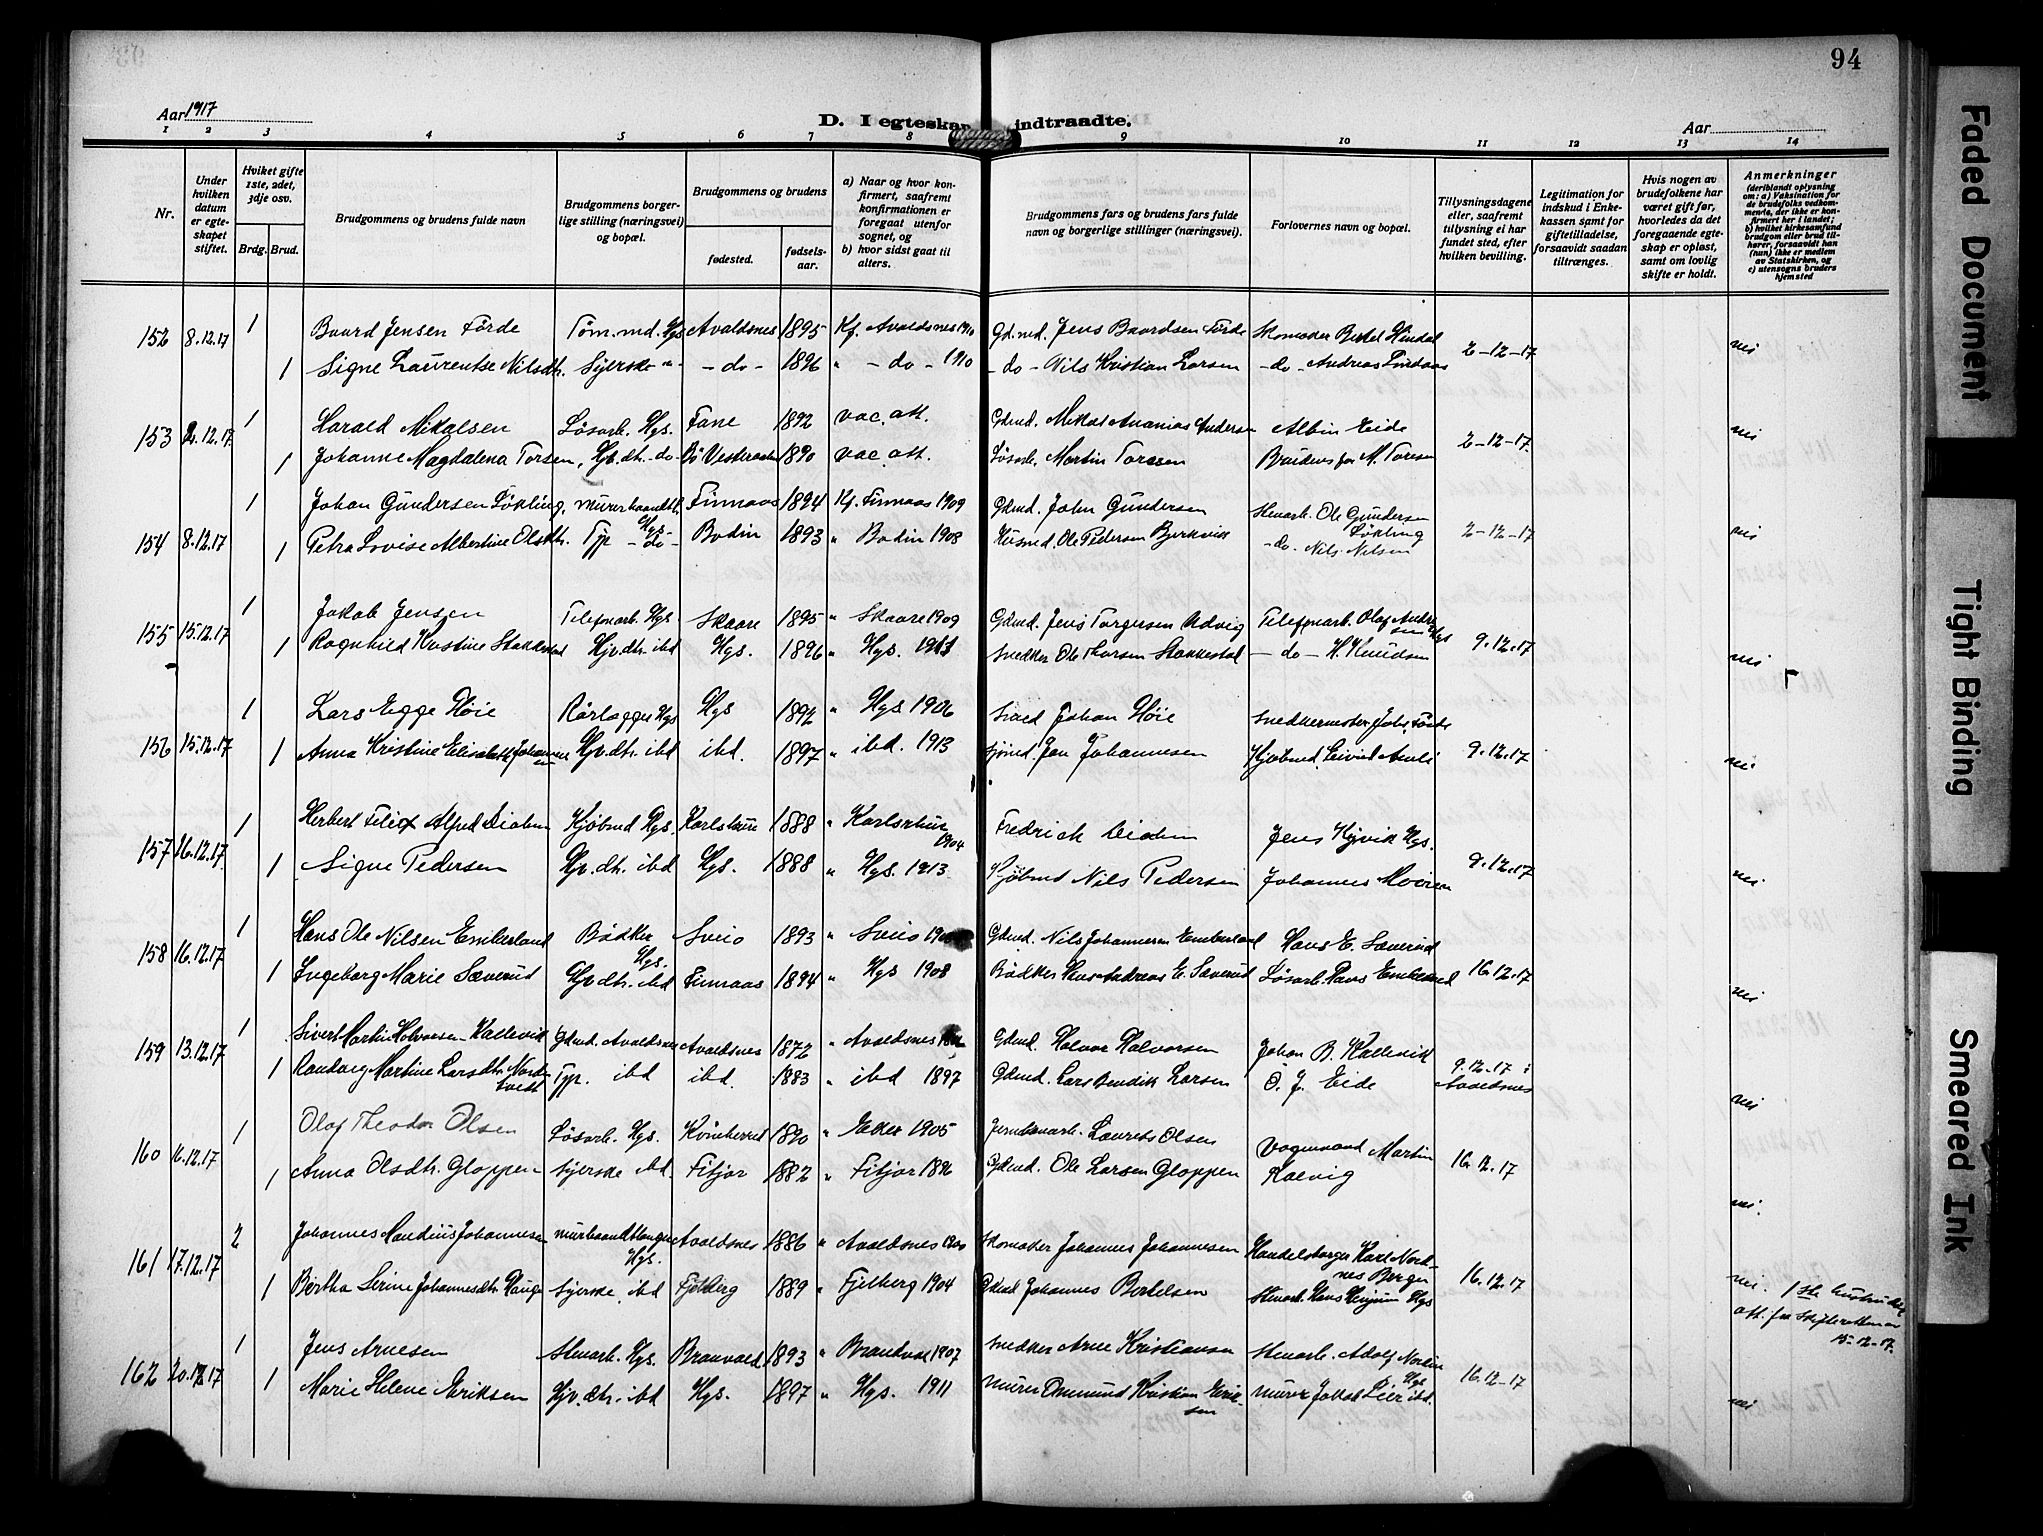 94
Aar 1917
D. I egteskap indtraadte.
Aar
1 2 3 4 5 6 7 8 9 10 11 12 13 14
Nr.
Under hvilken datum er egteskapet stiftet.
Hviket gifte 1ste, 2det, 3dje osv.
Brdg. Brud.
Brudgommens og brudens fulde navn
Brudgommens borgerlige stilling (næringsvei) og bopæl.
Brudgommens og brudens
fødested.
fødselsaar.
a) Naar og hvor konfirmert, saafremt konfirmationen er foregaaet utenfor sognet, og
b) hvor sidst gaat til alters.
Brudgommens fars og brudens fars fulde navn og borgerlige stillinger (næringsvei).
Forlovernes navn og bopæl.
Tillysningsdagene eller, saafremt tillysning ei har fundet sted, efter hvilken bevilling.
Legitimation for indskud i Enkekassen samt for giftetilladelse, forsaavidt saadan tiltrænges.
Hvis nogen av brudefolkene har været gift før, hvorledes da det foregaaende egteskap er opløst, samt om lovlig skifte er holdt.
Anmerkninger
(deriblandt oplysning om: a) Vaksination for de brudefolks vedkommende, der ikke er konfirmert her i landet; b) hvilket kirkesamfund brudgom eller brud tilhører, forsaavidt han (hun) ikke er medlem av Statskirken, og c) utensogns bruders hjemsted
152 8.12.17 1 Baard Jensen Förde Töm.md. Hgs Avaldsnes 1895 Kf. Avaldsnes 1910 Gd.md. Jens Baardsen Förde Skomaker Bertel Hindal 2-12-17 nei
1 Signe Laurentse Nilsdtr. Syerske - do - 1896 " - do - 1910 - do - Nils Kristian Larsen - do - Andreas Lindaas
153 2.12.17 1 Harald Mikalsen Løsarb. Hgs. Fane 1892 vac. att. Gdmd. Mikal Ananias Andersen Albin Eide 2-12-17 nei
1 Johanne Magdalena Torsen, Hjv.dtr. do Bö Vesteraalen 1890 vac. att. Løsarb. Martin Toresen Brudens far M. Toresen
154 8.12.17 1 Johan Gundersen Løkling, murerhaandtl. Hgs. Finnaas 1894 Kf. Finnaas 1909 Gdmd. John Gundersen Stenarb. Ole Gundersen Løkling 2-12-17 nei
1 Petra Lovise Albertine Olsdtr. Tjp - do - Bodin 1893 " Bodin 1908 Husmd. Ole Pedersen Bjerkvik - do - Nils Nilsen
155 15.12.17 1 Jakob Jensen Telefonarb. Hgs. Skaare 1895 " Skaare 1909 Gdmd. Jens Torgersen Advig Telefonarb. Olaf Andersen Hgs 9.12.17 nei
1 Ragnhild Kristine Stakkestad Hjv.dtr. ibd Hgs. 1896 " Hgs. 1911 Snedker Ole Thorsen Stakkestad - do - H. Knudsen
156 15.12.17 1 Lars Egge Høie Rørlægger Hgs Hgs 1892 " Hgs 1906 Smed Johan Høie Snedkermester Johs. Förde 9.12.17 nei
1 Anna Kristine Elisabeth Johannesen Hjv.dtr. ibd ibd. 1897 " ibd. 1913 Sjömd. Jan Johannesen Kjøbmd. Eivind Amli
157 16.12.17 1 Herbert Felix Alfred Kjøbmd Hgs. Karlshuse 1888 " Karlsrhue 1904 Fredrick Jens Kjvik Hgs. 9.12.17 nei
1 Signe Pedersen Hjv.dtr. ibd Hgs. 1888 " Hgs. 1913 Kjöbmd Nils Pedersen Johannes
158 16.12.17 1 Hans Ole Nilsen Emberland Bødker Hgs. Sveio 1893 " Sveio Gdmd. Nils Johannesen Emberland Hans E. Sæverud 16.12.17 nei
1 Ingeborg Marie Sæverud Hjv.dtr. ibd Finnaas 1894 " Hgs 1908 Bödker Hans Andreas E. Sæverud Løsarb. Hans Emberland
159 13.12.17 1 Sivert Martin Halvorsen Kallevik Gdmd. Avaldsnes Avaldsnes 1872 " Avaldsnes Gdmd. Halvor Halvorsen Johan B. Kallevik 9.12.17 i Avaldsnes nei
1 Randorg Martine Larsdtr. Nordtveit Tjp. ibd ibd. 1883 " ibd 1897 Gdmd. Lars Bendik Larsen O. J. Eide
160 16.12.17 1 Olaf Theodor Olsen Løsarb. Hgs. Kvinherred 1890 " Eker 1905 Laurets Olsen Vognmand Martin Kalvig 16.12.17 nei
1 Anna Olsdtr. Gloppen Syerske ibd. Fitjar 1882 " Fitjar 1896 Gdmd. Ole Larsen Gloppen
161 17.12.17 2 Johannes Mandius Johannesen murhaandtlanger Hgs. Avaldsnes 1886 " Avaldsnes 1900 Skomaker Johannes Johannesen Handelsborger Karl Nordnes Bergen 16.12.17 nei. 1ste hustru død att. fra Skifteretten av 15-12-17.
1 Bertha Serine Johannesdtr. Hauge Syerske ibd Fjelberg 1889 " Fjelberg 1904 Gdmd Johannes Bertelsen Stenarb. Hans Hgs
162 20.12.17 1 Jens Arnesen Stenarb. Hgs. Brandvold 1893 " Brandval 1907 Snedker Arne Kristiansen Stenarb. Adolf Hgs 16.12-17 nei
1 Marie Helene Eriksen Hjv.dtr. ibd Hgs. 1897 " Hgs. 1911 Murer Ommund Kristian Eriksen Murer Jakob Lier ibd.
Faded Document
Tight Binding
Smeared Ink